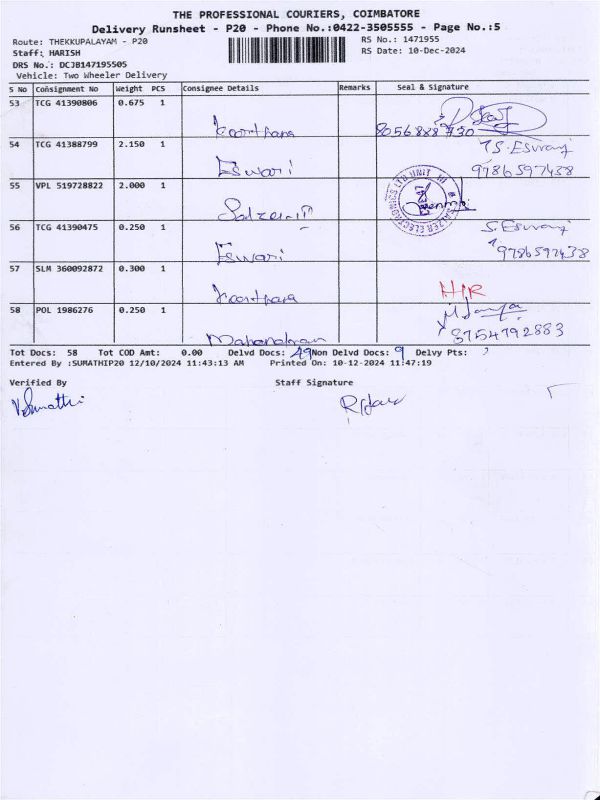 THE PROFESSIONAL COURIERS, COIMBATORE
Delivery Runsheet - P20 - Phone No.:0422-3505555 - Page No.:5
Route: THEKKUPALAYAM - P20
RS No.: 1471955
Staff: HARISH
RS Date: 10-Dec-2024
DRS No.: DCJB147195505
Vehicle: Two Wheeler Delivery
S No Consignment No Weight PCS Consignee Details Remarks Seal & Signature
53 TCG 41390806 0.675 1
54 TCG 41388799 2.150 1
Eswari S. Eswari
9786597438
55 VPL 519728822 2.000 1
56 TCG 41390475 0.250 1
Eswari S. Eswari
9786597438
57 SLM 360092872 0.300 1
58 POL 1986276 0.250 1
8754792883
Tot Docs: 58 Tot COD Amt: 0.00 Delvd Docs: 49 Non Delvd Docs: 9 Delvy Pts:
Entered By :SUMATHIP20 12/10/2024 11:43:13 AM Printed On: 10-12-2024 11:47:19
Verified By Staff Signature